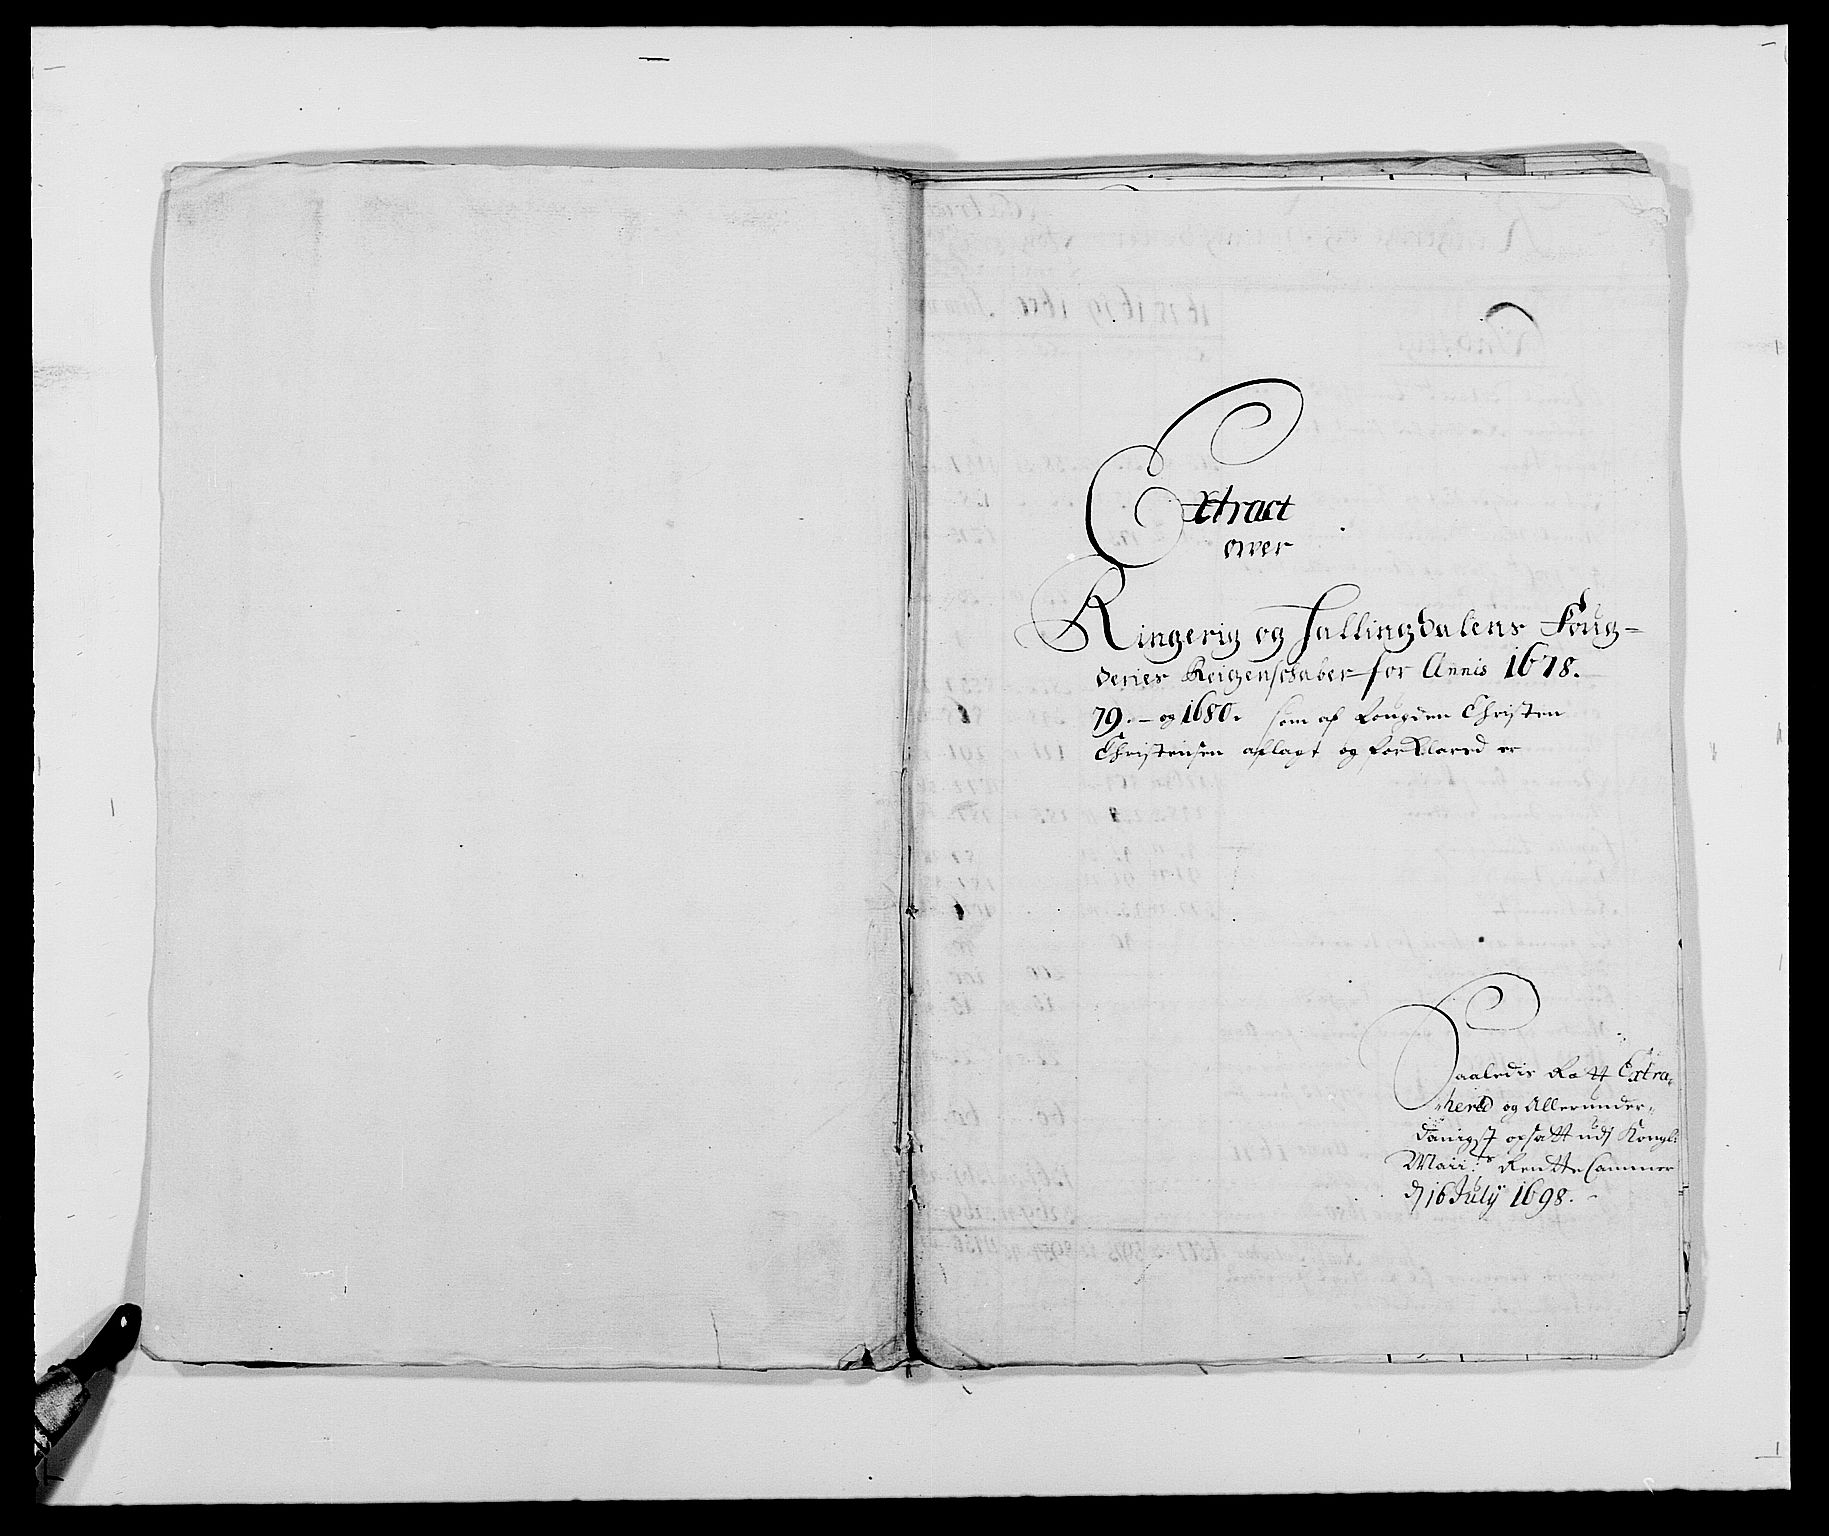 Extract
over
Ringerig og Hallingdalens Foug-
deries Reigenskaber for Annis 1678.
79. - og 1680. som af Fougden Christen
Christensen aflagt og forklared er
Saaledis Rætt Extra-
herid og Allerunder-
danigst opsatt udj Kongl:
Maii:ts Rentte Cammer
d 16 July 1698.